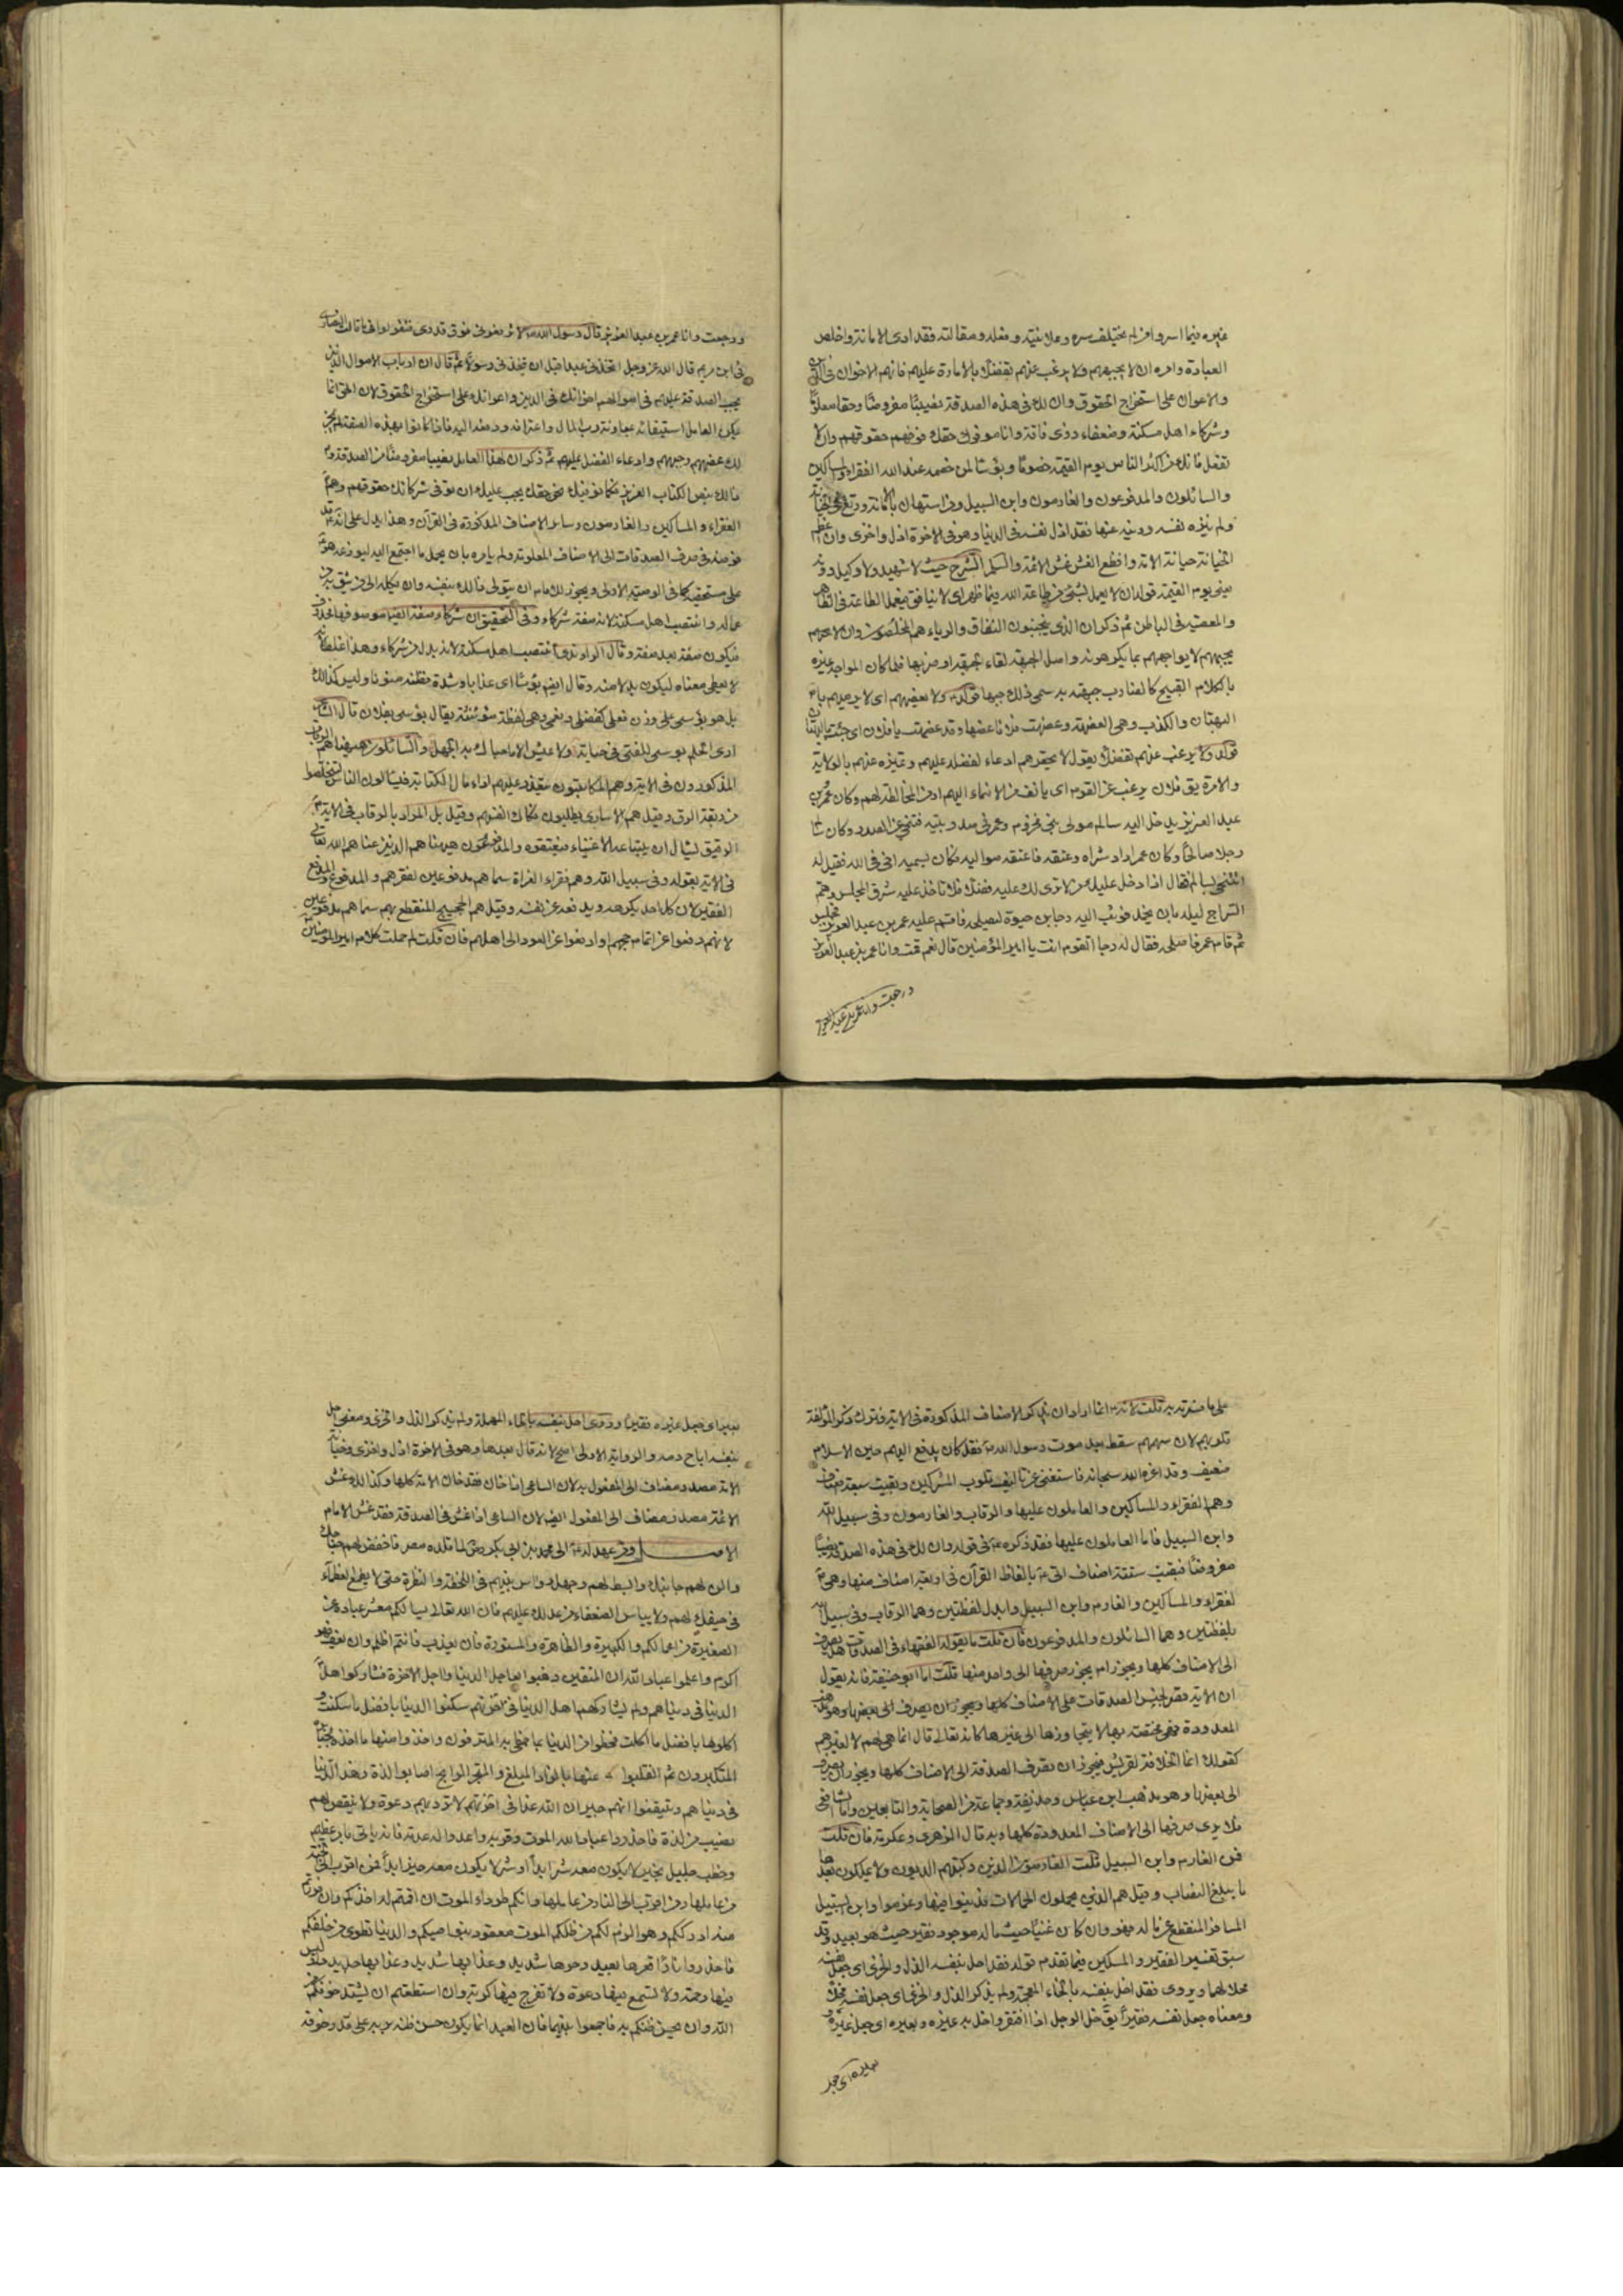 غيره فيما اسر وامر ان لم يختلف سره وعلانيته وفعله ومقالته فقد ادى الامانة واخلص
العبادة وامره ان لا يجبههم ولا يرغب عنهم تفضلا بالامارة عليهم فانهم الاخوان فى الدين
والاعوان على استخراج الحقوق وان لك فى هذه الصدقة نصيبا مفروضا وحقا معلوما
وشركاء اهل مسكنة وضعفاء ذوى فاقة وانا موفوك حقك فوفهم حقوقهم والا
تفعل فانك من اكثر الناس يوم القيمة خصوما وبؤسا لمن خصمه عند الله الفقراء والمساكين
والسائلون والمدفوعون والغارمون وابن السبيل ومن استهان بالامانة ورتع فى الخيانة
ولم ينزه نفسه ودينه عنها فقد اذل نفسه فى الدنيا وهو فى الاخرة اذل واخزى وان اعظم
الخيانة خيانة الامة وافظع الغش غش الائمة والسلم الشرح حيث لا شهيد ولا وكيل دونه
يعنى يوم القيمة قوله ان لا يعمل بشئ من طاعة الله فيما ظهر اى لا ينافق فيعمل الطاعة فى الظاهر
والمعصية فى الباطن ثم ذكر ان الذى يجتنبون النفاق والرياء هم المخلصون وان لا
يجبههم لا يواجههم بما يكرهونه واصل الجبهة لقاء الجبهة او ضربها فلما كان المواجه غيره
بالكلام القبيح كالضارب جبهته به سمى ذلك جبها قوله ولا يعضههم اى لا يرميهم
البهتان والكذب وهى العضيهة وعضهت فلانا عضها وقد عضهت يا فلان اى جئت بالبهتان
قوله ولا يرغب عنهم تفضلا يقول لا يحقرهم ادعاء لفضله عليهم وتميزه عنهم بالولاية
والامرة يق فلان يرغب عن القوم اى يانف من الانتماء اليهم او من المخالطة لهم وكان عمر بن
عبد العزيز يدخل اليه سالم مولى بنى مخزوم وعمر فى صدر بيته فتنحى عن الصدر وكان سالم
رجلا صالحا وكان عمر اراد شراه وعتقه فاعتقه مواليه فكان يسميه اخى فى الله فقيل له
اتتنحى لسالم فقال اذا دخل عليك من لا ترى لك عليه فضلا فلا تاخذ عليه شرف المجلس وهم
السراج ليلة بان يخمد فوثب اليه رجا بن حيوة ليصلحه فاقسم عليه عمر بن عبد العزيز فجلس
ثم قام عمر فاصلحه فقال له رجا اتقوم انت يا امير المؤمنين قال نعم قمت وانا عمر بن عبد العزيز
ورجعت وانا عمر بن عبد العزيز
ورجعت وانا عمر بن عبد العزيز قال رسول الله لا ترفعونى فوق قدرى فتقولوا فى ما قالت النصارى
فى ابن مريم قال الله عز وجل اتخذنى عبدا قبل ان يتخذنى رسولا ثم قال ان ارباب الاموال الذين
يجب الصدقة عليهم فى اموالهم اخوانك فى الدين واعوانك على استخراج الحقوق لان الحق انما
يمكن العامل استيفائه بمعاونة رب المال واعترافه ودفعه اليه فاذا كانوا بهذه الصفة لم يجز
لك عضههم وجبههم وادعاء الفضل عليهم ثم ذكر ان لهذا العامل نصيبا مفروضا من الصدقة
ذلك بنص الكتاب العزيز فكما نوفيك نحن حقك يجب عليك ان توفى شركائك حقوقهم وهم
الفقراء والمساكين والغارمون وساير الاصناف المذكورة فى القرآن وهذا يدل على انه قد
فوضه فى صرف الصدقات الى الاصناف المعلومة ولم يامره بان يحمل ما اجتمع اليه ليوزعه هو
على مستحقيه كما فى الوصية الاولى ويجوز للامام ان يتولى ذلك بنفسه وان يكله الى من يثق به من
عماله وانتصب اهل مسكنة لانه صفة شركاء وفى التحقيق ان شركاء صفة ايضا موصوفها محذوف
فيكون صفة بعد صفة وقال الراوندى انتصب اهل مسكنة لانه بدل من شركاء وهذا غلط لانه
لا يعطى معناه ليكون بدلا منه وقال ايضا بؤسا اى عذابا وشدة فظنه منونا وليس كذلك
بل هو بؤسى على وزن فعلى كفضلى ونعمى وهى لفظة مؤنثة يقال بؤسى بفلان قال الشاعر
ارى الحلم بوسى للفتى فى حياته ولا عيش الا ما حباك به الجهل والسائلون هيهنا هم الرقاب
المذكورون فى الاية وهم المكاتبون يتعذر عليهم اداء مال الكتابة فيسالون الناس ليتخلصوا
من ربقة الرق وقيل هم الاسارى يطلبون فكاك انفسهم وقيل بل المراد بالرقاب فى الاية
الرقيق ليسال ان يبتاعه الاغنياء فيعتقوه والمدفوعون هيهنا هم الذين عناهم الله تعالى
فى الاية بقوله وفى سبيل الله وهم فقراء الغزاة سماهم مدفوعين لفقرهم والمدفوع والمدفع
الفقير لان كل احد يكرهه ويدفعه عن نفسه وقيل هم الحجيج المنقطع بهم سماهم مدفوعين
لانهم دفعوا عن اتمام حجهم او دفعوا عن العود الى اهلهم فان قلت لم حملت كلام امير المؤمنين
على ما فسرته به قلت لانه انما اراد ان يذكر الاصناف المذكورة فى الاية فترك ذكر المؤلفة
قلوبهم لان سهمهم سقط بعد موت رسول الله فقد كان يدفع اليهم حين الاسلام
ضعيف وقد اعزه الله سبحانه فاستغنى عن تاليف قلوب المشركين وبقيت سبعة اصناف
وهم الفقراء والمساكين والعاملون عليها والرقاب والغارمون وفى سبيل الله
وابن السبيل فاما العاملون عليها فقد ذكره فى قوله وان لك فى هذه الصدقة نصيبا
مفروضا فبقيت ستة اصناف اتى بالفاظ القرآن فى اربعة اصناف منها وهى
الفقراء والمساكين والغارم وابن السبيل وابدل لفظتين وهما الرقاب وفى سبيل الله
بلفظتين وهما السائلون والمدفوعون فان قلت ما يقوله الفقهاء فى الصدقات هل يصرف
الى الاصناف كلها ويجوز ام يجوز صرفها الى واحد منها قلت اما ابو حنيفة فانه يقول
ان الاية قصر لجنس الصدقات على الاصناف كلها ويجوز ان يصرف الى بعضها وهو
المعدودة فهى مختصة بها لا يتجاوزها الى غيرها كانه تعالى قال انما هى لهم لا لغيرهم
كقولك انما الخلافة لقريش فيجوز ان تصرف الصدقة الى الاصناف كلها ويجوز ان يصرف
الى بعضها وهو مذهب ابن عباس وحذيفة وجماعة من الصحابة والتابعين واما الشافعى
فلا يرى صرفها الا الى الاصناف المعدودة كلها وبه قال الزهرى وعكرمة فان قلت
فمن الغارم وابن السبيل قلت الغارمون الذين ركبتهم الديون ولا يملكون بعدها
ما يبلغ النصاب وقيل هم الذين يحملون الحمالات فدينوا فيها وغرموا وابن السبيل
المسافر المنقطع عن ماله فهو وان كان غنيا حيث ماله موجود فقير حيث هو بعيد وقد
سبق تفسير الفقير والمسكين فيما تقدم قوله فقد احل بنفسه الذل والخزى اى جعل نفسه
محلا لهما ويروى فقد اخل بنفسه بالخاء المعجمة ولم يذكر الذل والخزى اى جعل نفسه مخلا
ومعناه جعل نفسه فقيرا يق خل الرجل اذا افتقر واخل به غيره وبغيره اى جعل غيره
بغيره اى جعل
بغيره اى جعل غيره فقيرا وروى احل بنفسه بالحاء المهملة ولم يذكر الذل والخزى ومعنى احل
بنفسه اباح دمه والرواية الاولى اصح لانه قال بعدها وهو فى الاخرة اذل واخزى وخيانة
الامة مصدر مضاف الى المفعول به لان الساعى اذا خان فقد خان الامة كلها وكذا لك غش
الائمة مصدر مضاف الى المفعول ايضا لان الساعى اذا غش فى الصدقة فقد غش الامام
الاصل ومن عهد له الى محمد بن ابى بكر رض لما قلده مصر فاخفض لهم جناحك
والن لهم جانبك وابسط لهم وجهك وواس بينهم فى اللحظة والنظرة حتى لا يطمع العظماء
فى حيفك لهم ولا يياس الضعفاء من عدلك عليهم فان الله تعالى يسالكم معشر عباده عن
الصغيرة من اعمالكم والكبيرة والظاهرة والمستورة فان يعذب فانتم اظلم وان يعف فهو
اكرم واعلموا عباد الله ان المتقين ذهبوا بعاجل الدنيا واجل الاخرة فشاركوا اهل
الدنيا فى دنياهم ولم يشاركهم اهل الدنيا فى اخرتهم سكنوا الدنيا بافضل ما سكنت و
اكلوها بافضل ما اكلت فحظوا من الدنيا بما حظى به المترفون واخذوا منها ما اخذه الجبابرة
المتكبرون ثم انقلبوا عنها بالزاد المبلغ والمتجر الرابح اصابوا لذة زهد الدنيا
فى دنياهم وتيقنوا انهم جيران الله غدا فى اخرتهم لا ترد لهم دعوة ولا ينقص لهم
نصيب من لذة فاحذروا عباد الله الموت وقربه واعدوا له عدته فانه ياتى بامر عظيم
وخطب جليل بخير لا يكون معه شر ابدا او شر لا يكون معه خير ابدا فمن اقرب الى الجنة
من عاملها ومن اقرب الى النار من عاملها وانكم طرداء الموت ان اقمتم له اخذكم وان فررتم
منه ادرككم وهو الزم لكم من ظلكم الموت معقود بنواصيكم والدنيا تطوى من خلفكم
فاحذروا نارا قعرها بعيد وحرها شديد وعذابها جديد دار ليس
فيها رحمة ولا تسمع فيها دعوة ولا تفرج فيها كربة وان استطعتم ان يشتد خوفكم من
الله وان يحسن ظنكم به فاجمعوا بينهما فان العبد انما يكون حسن ظنه بربه على قدر خوفه